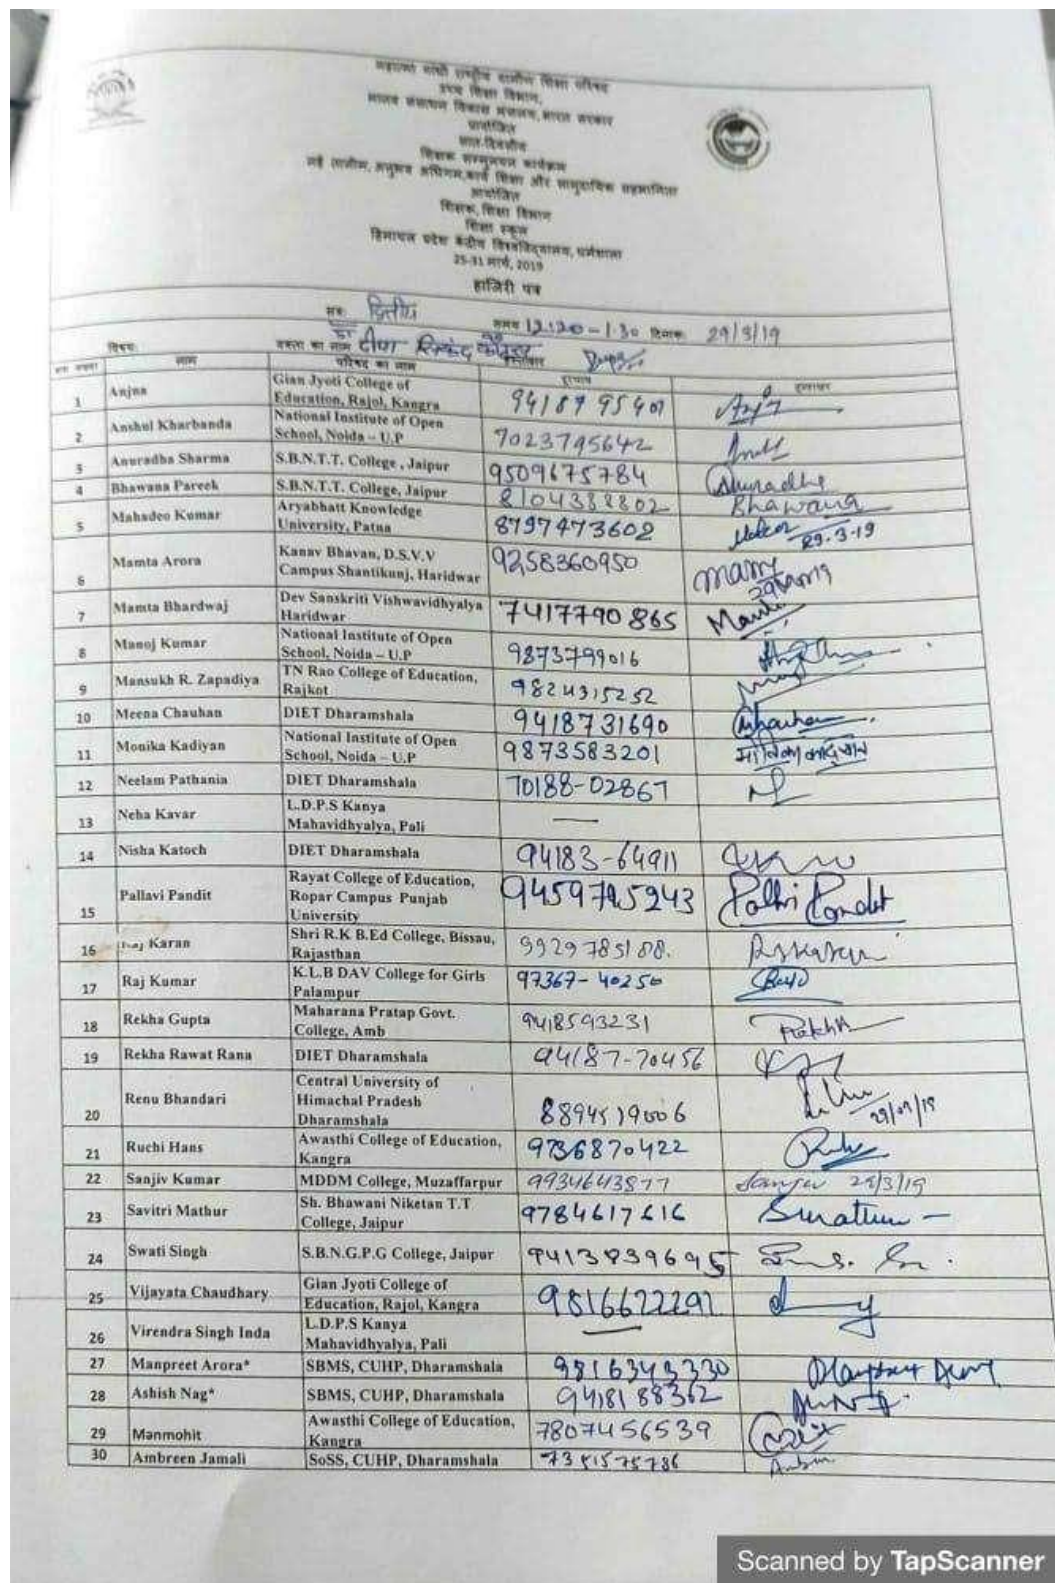 महात्मा गांधी राष्ट्रीय ग्रामीण शिक्षा परिषद
उच्च शिक्षा विभाग,
मानव संसाधन विकास मंत्रालय, भारत सरकार
प्रायोजित
सात-दिवसीय
शिक्षक कार्यक्रम
नई तालीम, अनुभव अधिगम, कार्य शिक्षा और सामुदायिक सहभागिता
आयोजित
शिक्षक, शिक्षा विभाग
शिक्षा स्कूल
हिमाचल प्रदेश केंद्रीय विश्वविद्यालय, धर्मशाला
25-31 मार्च, 2019
हाजिरी पत्र
सत्र: द्वितीय समय 12:20 - 1.30 दिनांक 29/3/19
विषय: वक्ता का नाम डा दीपा हस्ताक्षर
नाम परिषद का नाम दूरभाष हस्ताक्षर
1 Anjna Gian Jyoti College of Education, Rajol, Kangra
2 Anshul Kharbanda National Institute of Open School, Noida – U.P 7023795642
3 Anuradha Sharma S.B.N.T.T. College , Jaipur 9509675784 Anuradha
4 Bhawana Pareek S.B.N.T.T. College, Jaipur 8104388802 Bhawana
5 Mahadeo Kumar Aryabhatt Knowledge University, Patna 8797473602 29.3.19
6 Mamta Arora Kanav Bhavan, D.S.V.V Campus Shantikunj, Haridwar 9258360950
7 Mamta Bhardwaj Dev Sanskriti Vishwavidhyalya Haridwar 7417790865
8 Manoj Kumar National Institute of Open School, Noida – U.P 9873799016
9 Mansukh R. Zapadiya TN Rao College of Education, Rajkot 9824315252
10 Meena Chauhan DIET Dharamshala 9418731690
11 Monika Kadiyan National Institute of Open School, Noida – U.P 9873583201 मोनिका कादयान
12 Neelam Pathania DIET Dharamshala 70188-02867
13 Neha Kavar L.D.P.S Kanya Mahavidhyalya, Pali —
14 Nisha Katoch DIET Dharamshala 94183-64911
15 Pallavi Pandit Rayat College of Education, Ropar Campus Punjab University 9459795243 Pallavi Pandit
16 Karan Shri R.K B.Ed College, Bissau, Rajasthan
17 Raj Kumar K.L.B DAV College for Girls Palampur 97367-40250
18 Rekha Gupta Maharana Pratap Govt. College, Amb 9418593231
19 Rekha Rawat Rana DIET Dharamshala 94187-70456
20 Renu Bhandari Central University of Himachal Pradesh Dharamshala 8894519006
21 Ruchi Hans Awasthi College of Education, Kangra 9736870422
22 Sanjiv Kumar MDDM College, Muzaffarpur 9934643877
23 Savitri Mathur Sh. Bhawani Niketan T.T College, Jaipur 9784617616
24 Swati Singh S.B.N.G.P.G College, Jaipur 9413839695
25 Vijayata Chaudhary Gian Jyoti College of Education, Rajol, Kangra 9816622292
26 Virendra Singh Inda L.D.P.S Kanya Mahavidhyalya, Pali —
27 Manpreet Arora* SBMS, CUHP, Dharamshala 9816343330
28 Ashish Nag* SBMS, CUHP, Dharamshala 9418188362
29 Manmohit Awasthi College of Education, Kangra 7807456539
30 Ambreen Jamali SoSS, CUHP, Dharamshala
Scanned by TapScanner